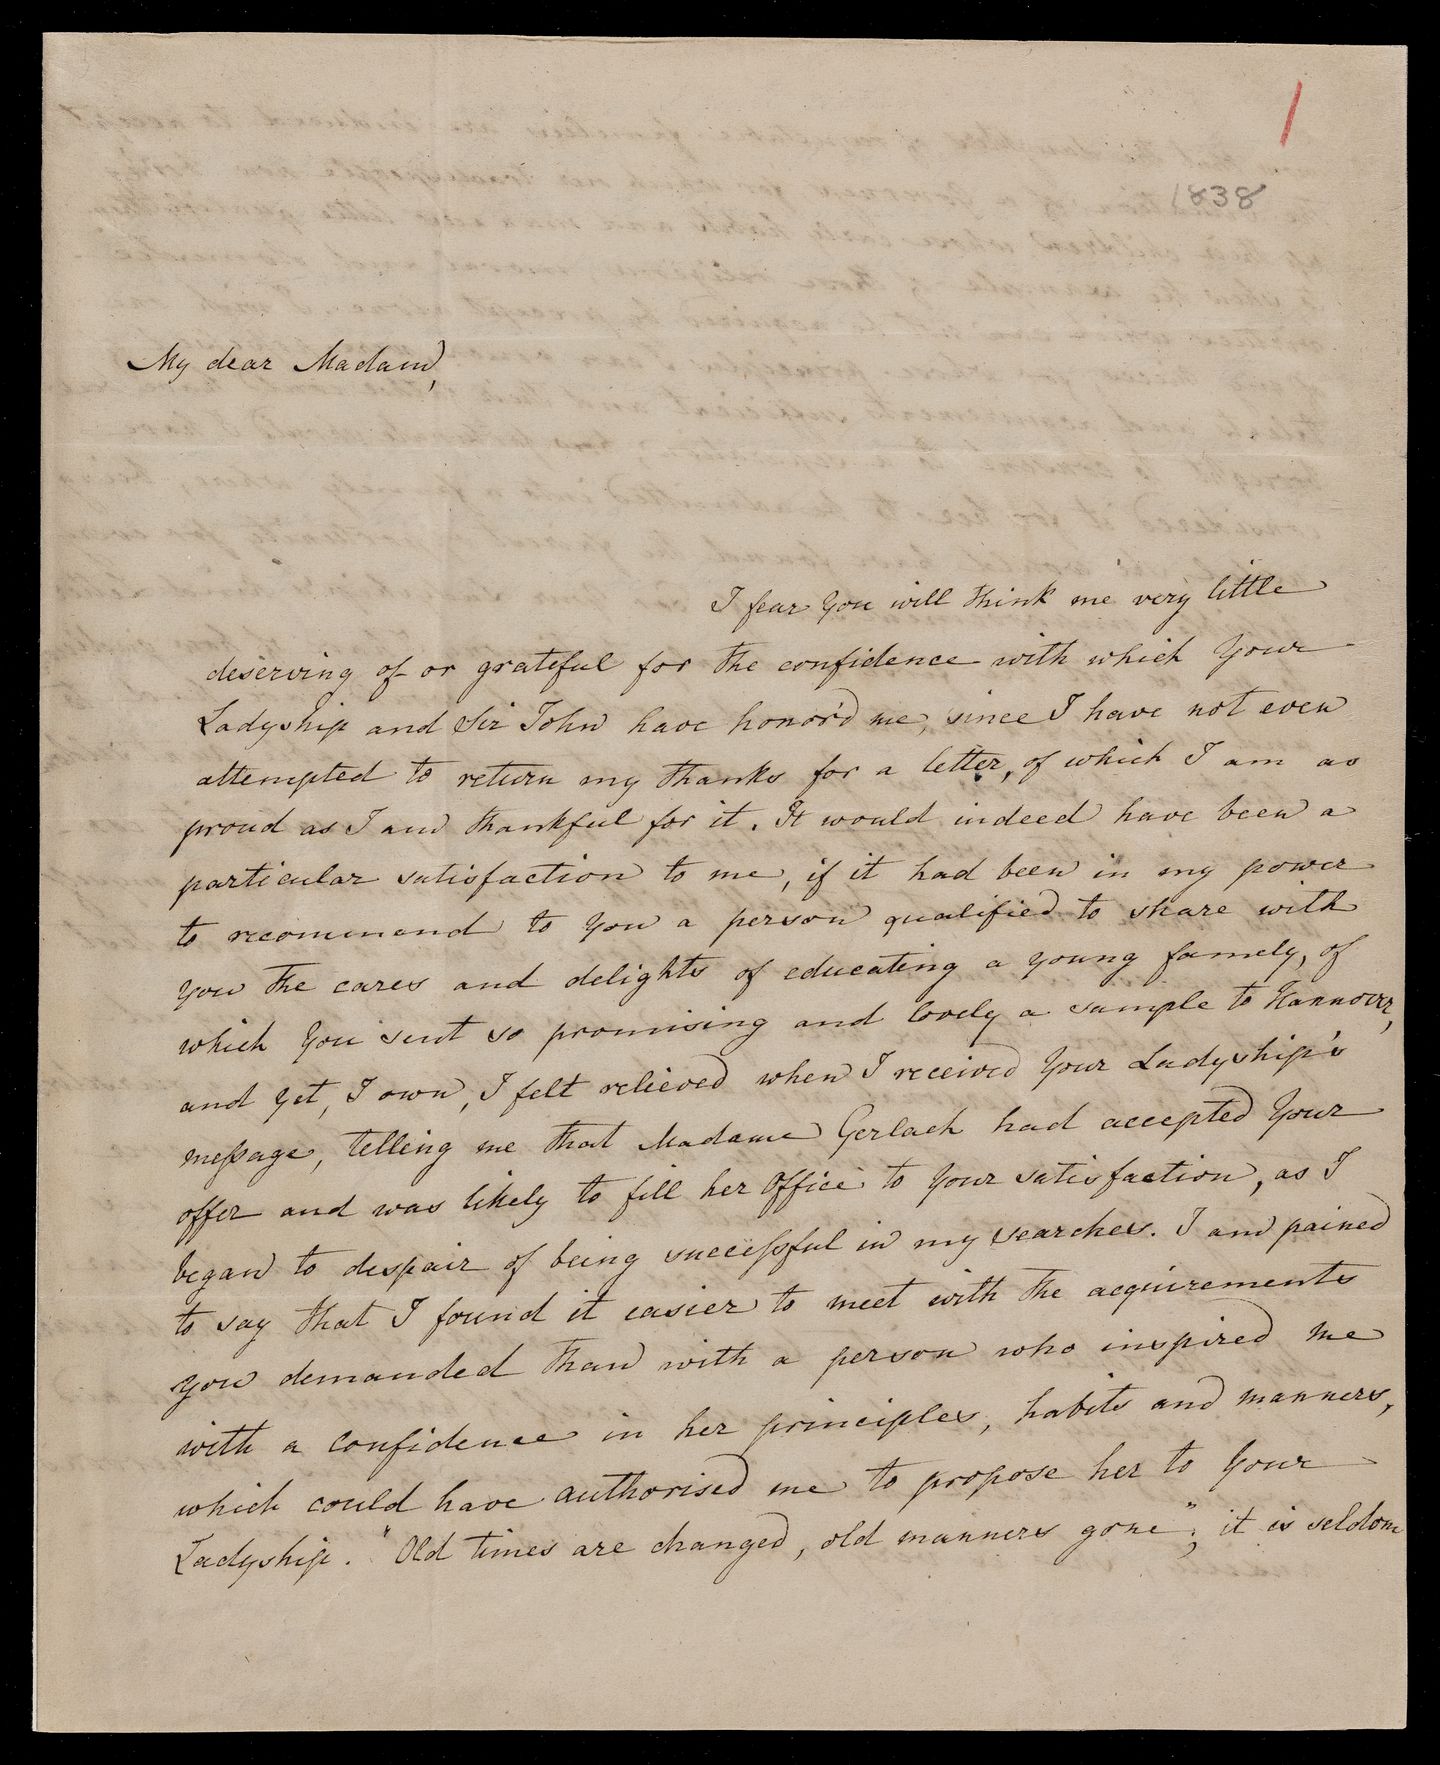 1
1838
My dear Madam,
I fear You will think me very little
deserving of or grateful for the confidence with which Your
Ladyship and Sir John have honor'd me, since I have not even
attempted to return my thanks for a letter, of which I am as
proud as I am thankful for it. It would indeed have been a
particular satisfaction to me, if it had been in my power
to recommend to You a person qualified to share with
You the cares and delights of educating a young famely, of
which You sent so promising and lovely a sample to Hannover,
and yet, I own, I felt relieved when I received Your Ladyship's
message, telling me that Madame Gerlach had accepted Your
offer and was likely to fill her Office to Your satisfaction, as I
began to despair of being successful in my searches. I am pained
to say that I found it easier to meet with the acquirements
You demanded than with a person who inspired me
with a confidence in her principles, habits and manners,
which could have authorised me to propose her to Your
Ladyship. "Old times are changed, old manners gone"; it is seldom